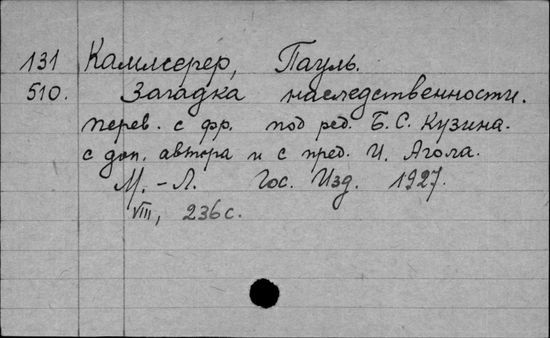 131 Каммерер, Пауль.
510. Загадка наследственности.
перев. с фр. под ред. Б. С. Кузина.
с доп. автора и с пред. И. Агола.
М.-Л. Гос. Изд. 1927.
VIII, 236 с.